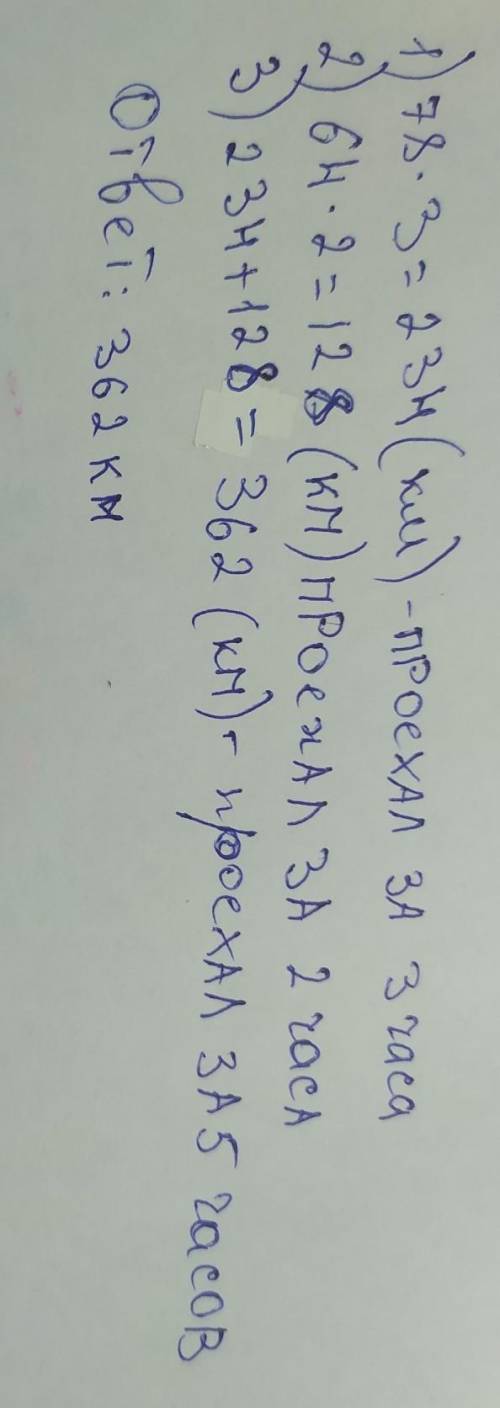 1) 78·3=234(км)-проехал за 3 часа
2) 64·2=128(км)проехал за 2 часа
3) 234+128=362(км)-проехал за 5 часов
Ответ: 362км